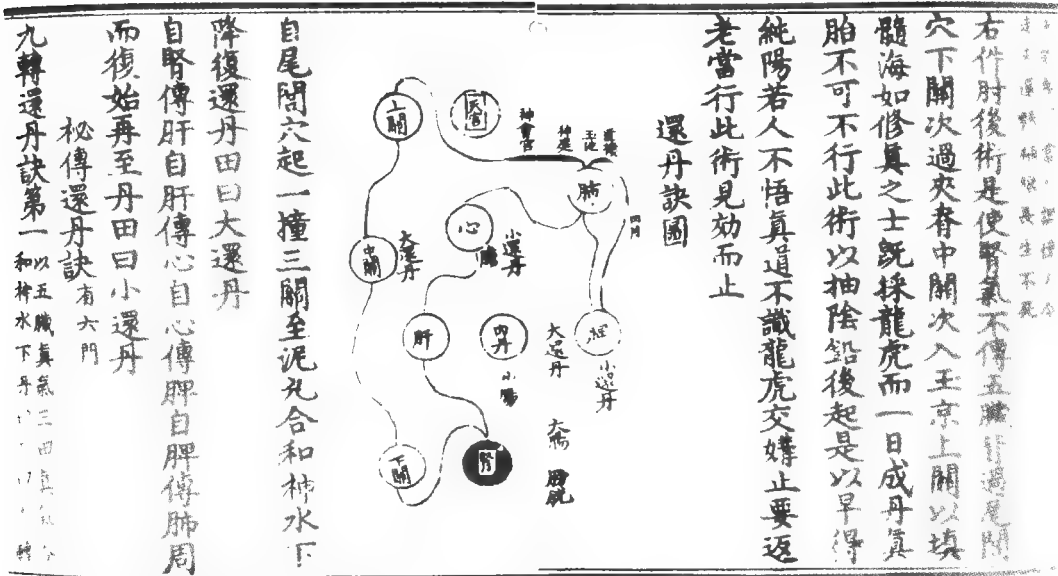 右件肘後術是使腎氣不傳五臟皆過尾閭
穴下關次過夾脊中關次入玉京上關以填
髓海如修眞之士既採龍虎而一日成丹眞
胎不可不行此術以抽陰鉛後起是以早得
純陽若人不悟眞道不識龍虎交媾止要返
老當行此術見効而止
還丹訣圖
肺
神會宮
天宮
上關
心
小還丹
大還丹
中關
小還丹
大還丹
內丹
肝
小腸
大腸
膀胱
腎
下關
自尾閭穴起一撞三關至泥丸合和神水下
降復還丹田曰大還丹
自腎傳肝自肝傳心自心傳脾自脾傳肺周
而復始再至丹田曰小還丹
秘傳還丹訣有六門
九轉還丹訣第一以五臟眞氣三田眞氣
和神水下丹